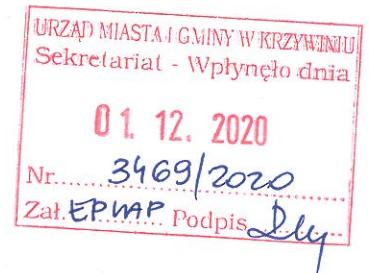 URZĄD MIASTA I GMINY W KRZYWINIU
Sekretariat - Wpłynęło dnia
01. 12. 2020
Nr..... 3469/2020
Zał. EPUAP Podpis